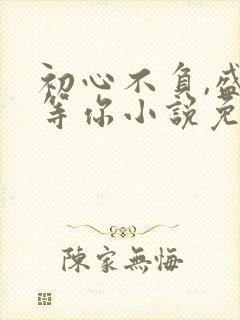 初心不負,盛
等你小說免
陳家無悔